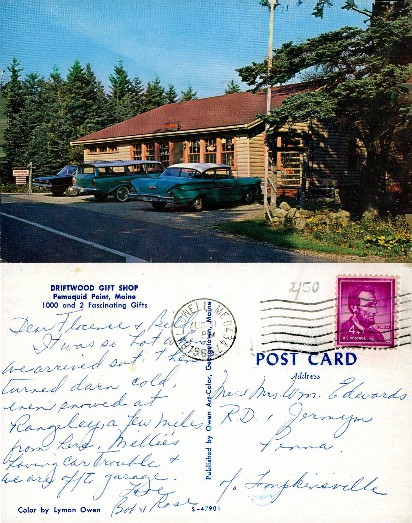 DRIFTWOOD GIFT SHOP
Pemaquid Point, Maine
1000 and 2 Fascinating Gifts
Dear Florence &
It was so hot as
we arrived out, &
turned darn cold,
even snowed at
Rangeley a few miles
from here. Nellie's
having car trouble &
we are off to garage.
Love
Bob & Rose
Color by Lyman Owen
S-47901
Published by Owen Art-Color, Georgetown, Maine
PM
250
4¢
U.S. POSTAGE
POST CARD
Address
Mr & Mrs Wm. Edwards
RD, Jermyn
Penna.
% Tompkinsville